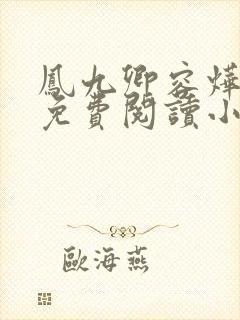 鳳九卿容燁
免費閱讀小
歐海燕